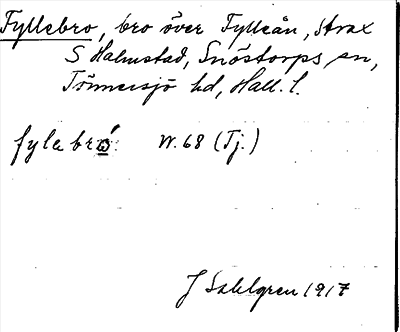 Fyllebro, bro över Fylleån, strax
S Halmstad, Snöstorps sn,
Tönnersjö hd, Hall. l.
fylebró W. 68 (Tj.)
J Sahlgren 1917